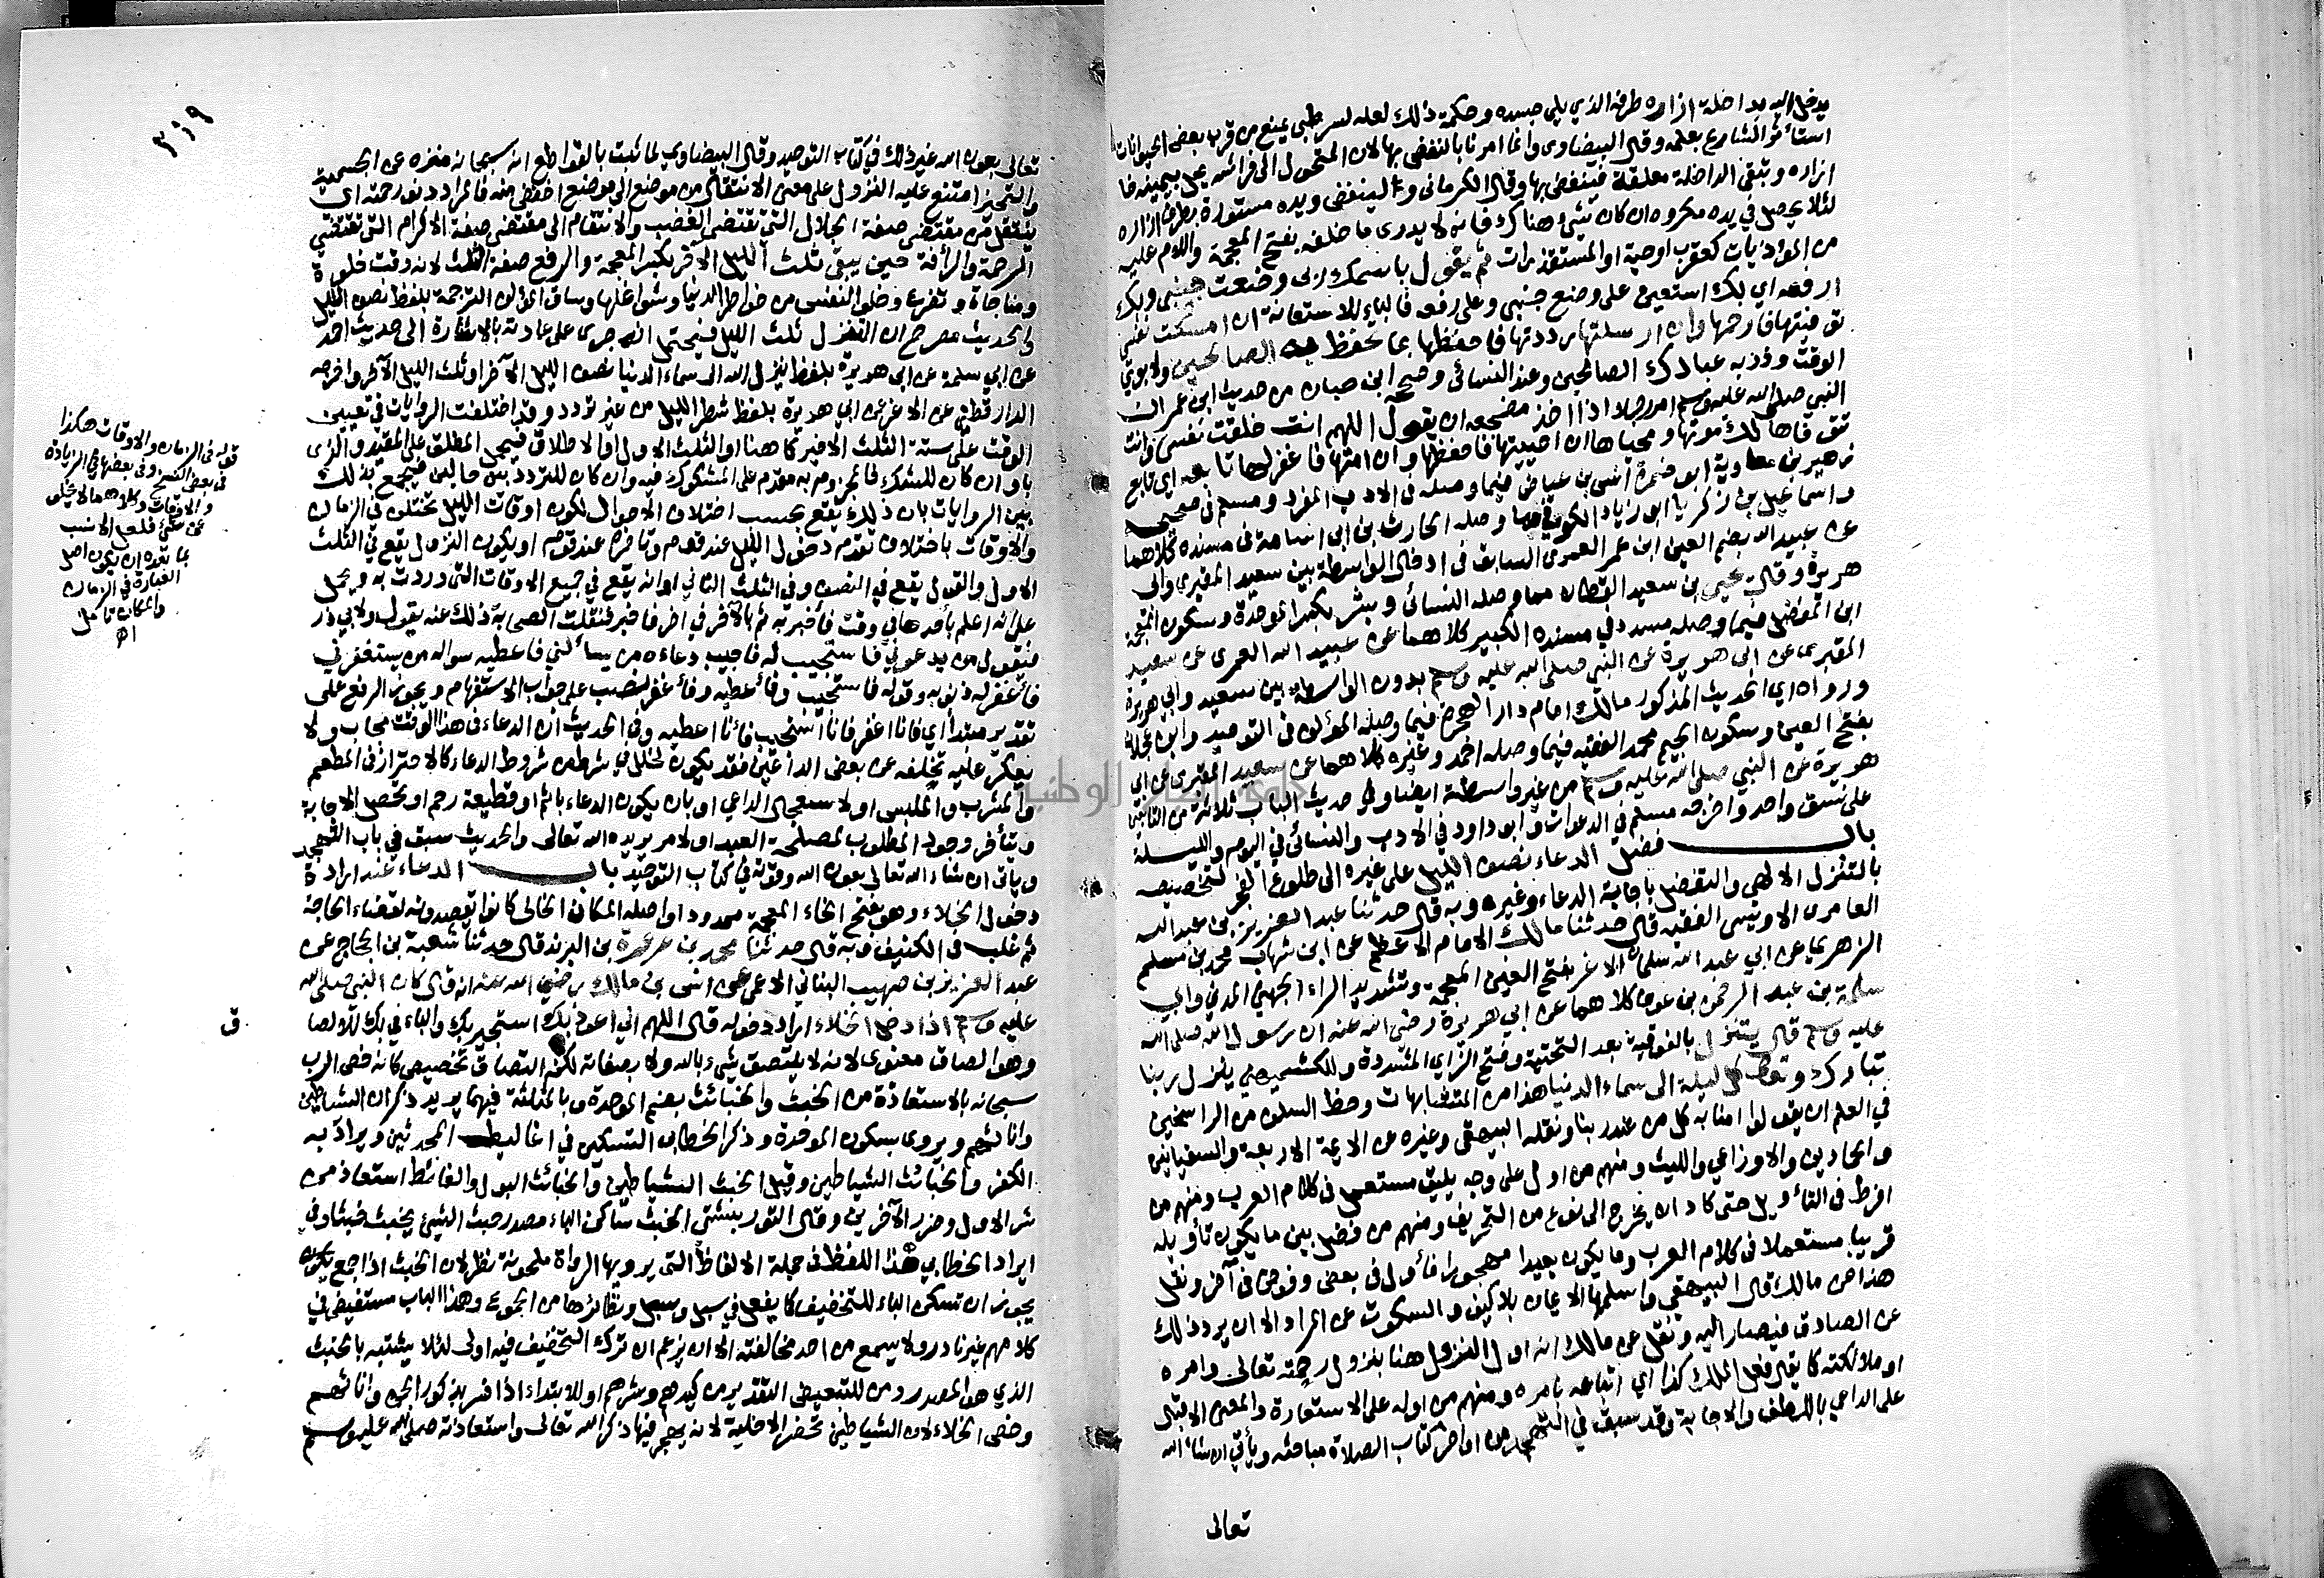 يدخل اليد بداخلة ازاره طرفه الذي يلي جسده وحكمة ذلك لعله لسر طبي يمنع من قرب بعض الحيوانات
استأثر الشارع بعلمه وقال البيضاوي وانما امرنا بالنفض بها لان المتحول الى فراشه يحل بيمينه خا
ازاره وتبقى الداخلة معلقة فينفض بها وقال الكرماني و لينفض ويده مستورة بطرف ازاره
لئلا يحصل في يده مكروه ان كان شئ هناك فانه لا يدرى ما خلفه بفتح المعجمة واللام عليه
من المؤذيات كعقرب او حية او المستقذرات ثم يقول باسمك ربى وضعت جنبى وبك
ارفعه اي بك استعين على وضع جنبى وعلى رفعه فالباء للاستعانة ان امسكت نفسى
توفيتها فارحمها وان ارسلتها رددتها فاحفظها بما تحفظ به الصالحين ولابوي
الوقت وذر به عبادك الصالحين وعند النسائى وصححه ابن حبان من حديث ابن عمر ان
النبي صلى الله عليه وسلم امر رجلا اذا اخذ مضجعه ان يقول اللهم انت خلقت نفسى وانت
تتوفاها لك موتها ومحياها ان احييتها فاحفظها وان امتها فاغفر لها تابعه اي تابع
زهير بن معاوية ابو ضمرة انس بن عياض فيما وصله في الادب المفرد ومسلم في صحيحه
واسماعيل بن زكريا ابو زياد الكوفى فيما وصله الحارث بن ابى اسامة فى مسنده كلاهما
عن عبيد الله بضم العين ابن عمر العمرى السابق فى ادخال الواسطة بين سعيد المقبرى وابى
هريرة وقال يحيى بن سعيد القطان مما وصله النسائى وبشر بكسر الموحدة وسكون المعجمة
ابن المفضل فيما وصله مسدد في مسنده الكبير كلاهما عن عبيد الله العمرى عن سعيد
المقبرى عن ابى هريرة عن النبى صلى الله عليه وسلم بدون الواسطة بين سعيد وابى هريرة
ورواه اي الحديث المذكور مالك امام دار الهجرة فيما وصله المؤلف فى التوحيد وابن عجلان
بفتح العين وسكون الجيم محمد الفقيه فيما وصله احمد وغيره كلاهما عن سعيد المقبرى عن ابى
هريرة عن النبي صلى الله عليه وسلم من غير واسطة ايضا وفي حديث الباب ثلاثة من التابعين
على نسق واحد واخرجه مسلم في الدعوات وابو داود في الادب والنسائى في اليوم والليلة
باب فضل الدعاء نصف الليل على غيره الى طلوع الفجر لتخصيصه
بالتنزل الالهى والتفضل باجابة الدعاء وغيره وبه قال حدثنا عبد العزيز بن عبد الله
العامرى الاويسى الفقيه قال حدثنا مالك الامام الاعظم عن ابن شهاب محمد بن مسلم
الزهري عن ابي عبد الله سلمان الاغر بفتح الغين المعجمة وتشديد الراء الجهني المدني وابي
سلمة بن عبد الرحمن بن عوف كلاهما عن ابي هريرة رضى الله عنه ان رسول الله صلى الله
عليه وسلم قال يتنزل بالفوقية بعد التحتية وفتح الزاي المشددة وللكشميهني ينزل ربنا
تبارك وتعالى كل ليلة الى سماء الدنيا هذا من المتشابهات وحظ السلف من الراسخين
في العلم ان يقولوا امنا به كل من عند ربنا ونقله البيهقى وغيره عن الايمة الاربعة والسفيانين
والحمادين والاوزاعى والليث ومنهم من اول على وجه يليق مستعمل فى كلام العرب ومنهم من
افرط فى التأويل حتى كاد ان يخرج الى نوع من التحريف ومنهم من فصل بين ما يكون تأويله
قريبا مستعملا فى كلام العرب وما يكون بعيدا مهجورا فأول فى بعض وفوض فى آخر ونقل
هذا عن مالك قال البيهقى واسلمها الايمان بلا كيف والسكوت عن المراد الا ان يرد ذلك
عن الصادق فيصار اليه ونقل عن مالك انه اول النزول هنا بنزول رحمته تعالى وامره
او ملائكته كما يقال فعل الملك كذا اي اتباعه بامره ومنهم من اوله على الاستعارة والمعنى الاقبال
على الداعي باللطف والاجابة وقد سبق في التهجد من اواخر كتاب الصلاة مباحثه ويأتي ان شاء الله
تعالى
٣١٩
تعالى بعون الله غير ذلك في كتاب التوحيد وقال البيضاوي لما ثبت بالقواطع انه سبحانه منزه عن الجسمية
والتحيز امتنع عليه النزول على معنى الانتقال من موضع الى موضع اخفض منه فالمراد دنو رحمته اى
ينتقل من مقتضى صفة الجلال التى تقتضى الغضب والانتقام الى مقتضى صفة الاكرام التى تقتضي
الرحمة والرأفة حين يبقى ثلث الليل الآخر بكسر المعجمة والرفع صفة الثلث لانه وقت خلوة
ومناجاة وتضرع وخلو النفس من خواطر الدنيا وشواغلها وساق المؤلف الترجمة بلفظ نصف الليل
والحديث مصرح ان التنزل ثلث الليل فيحتمل انه جرى على عادته بالاشارة الى حديث احمد
عن ابي سلمة عن ابى هريرة بلفظ ينزل الله الى سماء الدنيا نصف الليل الآخر او ثلث الليل الآخر واخرجه
الدارقطنى عن الاغر عن ابي هريرة بلفظ شطر الليل من غير تردد وقد اختلفت الروايات في تعيين
الوقت على ستة الثلث الاخير كما هنا او الثلث الاول او الاطلاق فيحمل المطلق على المقيد والذى
باو ان كان للشك فالمجزوم به مقدم على المشكوك فيه وان كان للتردد بين حالين فيجمع بذلك
بين الروايات بان ذلك يقع بحسب اختلاف الاحوال لكون اوقات الليل تختلف في الزمان
والاوقات باختلاف تقدم دخول الليل عند قوم وتأخره عند قوم او يكون النزول يقع في الثلث
الاول والقول يقع في النصف وفي الثلث الثاني او انه يقع في جميع الاوقات التى وردت به ويحمل
على انه اعلم بأحدها في وقت فأخبر به ثم بالآخر في اخر فاخبر فنقلت الصحابة ذلك عنه يقول ولابي ذر
فيقول من يدعوني فاستجيب له فاجيب دعاءه من يسألني فاعطيه سواله من يستغفرني
فأغفر له ذنوبه وقوله فاستجيب وفأعطيه وفأغفر نصب على جواب الاستفهام ويجوز الرفع على
تقدير مبتدأ اي فانا اغفر فانا استجيب فأنا اعطيه وفى الحديث ان الدعاء فى هذا الوقت مجاب ولا
يعكر عليه تخلفه عن بعض الداعين فقد يكون لخلل في شرط من شروط الدعاء كالاحتراز فى المطعم
والمشرب والملبس او لاستعجال الداعي او بان يكون الدعاء باثم او قطيعة رحم او تحصل الاجابة
ويتأخر وجود المطلوب لمصلحة العبد او لامر يريده الله تعالى والحديث سبق في باب التهجد
وياتى ان شاء الله تعالى بعون الله وقوته في كتاب التوحيد باب الدعاء عند ارادة
دخول الخلاء وهو بفتح الخاء المعجمة ممدودا واصله المكان الخالى كانوا يقصدونه لقضاء الحاجة
ثم غلب فى الكنيف وبه قال حدثنا محمد بن عرعرة بن البرند قال حدثنا شعبة بن الحجاج عن
عبد العزيز بن صهيب البناني الاعمى عن انس بن مالك رضي الله عنه انه قال كان النبي صلى الله
عليه وسلم اذا دخل الخلاء اراد دخوله قال اللهم اني اعوذ بك استجير بك والباء في بك للالصاق
وهو الصاق معنوى لانه لا يلتصق شىء بالله ولا بصفاته لكنه التصاق تخصيص كانه خص الرب
سبحانه بالاستعاذة من الخبث والخبائث بضم الموحدة وبالمثلثة فيهما يريد ذكران الشياطين
واناثهم ويروى بسكون الموحدة وذكر الخطابى التسكين في اغاليط المحدثين ويراد به
الكفر والخبائث الشياطين وقيل الخبث الشياطين والخبائث البول والغائط استعاذ من
شر الاول وضرر الآخرين وقال التوربشتى الخبث ساكن الباء مصدر خبث الشئ يخبث خبثا وفي
ايراد الخطابي هذا اللفظ فى جملة الالفاظ التى يرويها الرواة ملحونة نظر لان الخبث اذا جمع يكون
يجوز ان تسكن الباء للتخفيف كما يفعل في سبل وسبل ونظائرها من الجموع وهذا الباب مستفيض في
كلامهم غير نادر ولا يسمع من احد مخالفته الا ان يزعم ان ترك التخفيف فيه اولى لئلا يشتبه بالخبث
الذي هو المصدر ومن للتبعيض التقدير من كيدهم وشرهم او للابتداء اذا فسر بذكور الجن واناثهم
وخص الخلاء لان الشياطين تحضر الاخلية لانه يهجر فيها ذكر الله تعالى واستعاذته صلى الله عليه وسلم
قوله فى الزمان والاوقات هكذا
فى بعض النسخ وفى بعضها فى الزيادة
والاوقات وكلاهما لا يخلو
عن شئ فلعل الانسب
بما تقدم ان يكون اصل
العبارة فى الزمان
والمكان تأمل
اه
ق